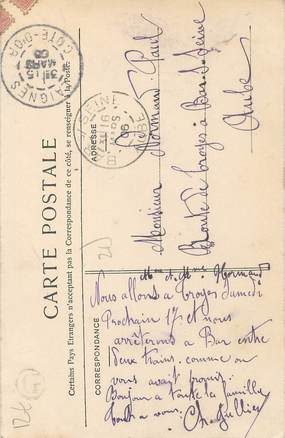 CARTE POSTALE
Certains Pays Etrangers n'acceptent pas la Correspondance de ce côté, se renseigner à la Poste.
CORRESPONDANCE
ADRESSE
LAIGNES
15
MARS
06
CÔTE-D'OR
BAR-S-SEINE
16
MARS
06
AUBE
Monsieur Normand Paul
Route de Troyes à Bar-S-Seine
Aube
Mr et Mme Normand
Nous allons à Troyes Samedi
Prochain 17 et nous
arrêterons à Bar entre
deux trains, comme on
vous avait promis.
Bonjour à toute la famille
tout à vous.